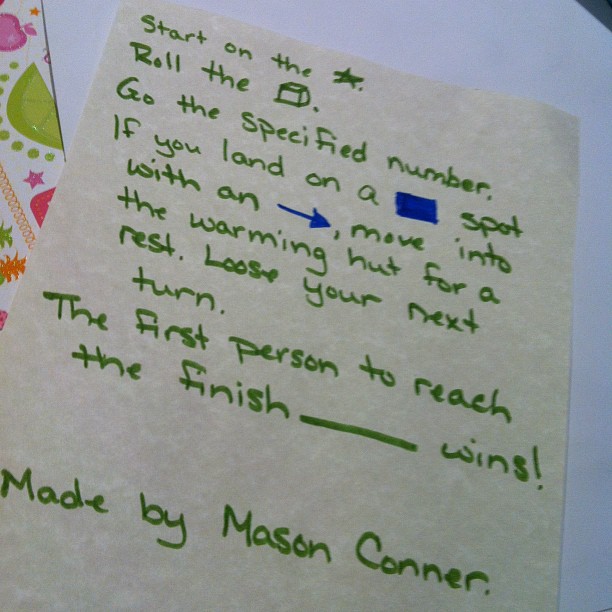 Start on the ★.
Roll the .
Go the specified number.
If you land on a spot
with an →, move into
the warming hut for a
rest. Loose your next
turn.
The first person to reach
the finish ____ wins!
Made by Mason Conner.